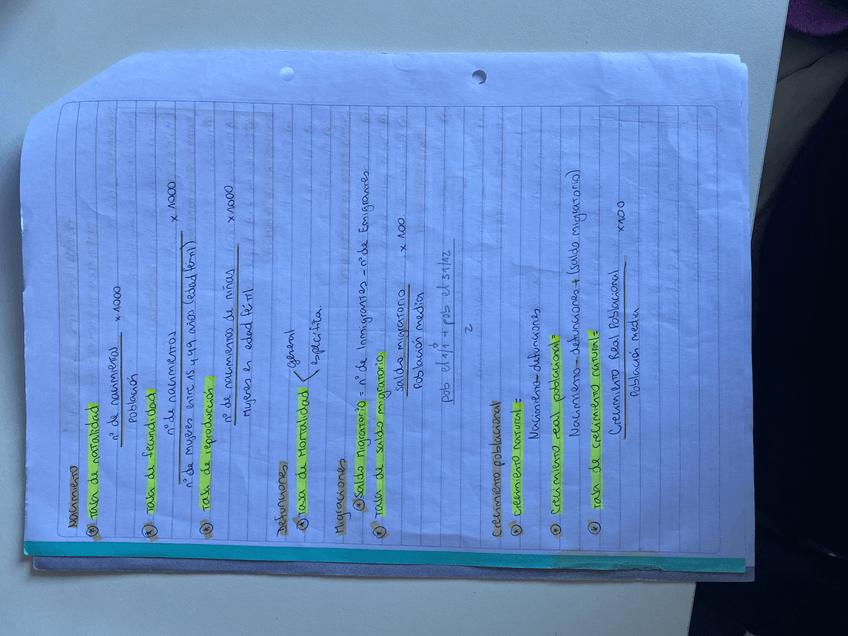 Nacimiento
* Tasa de natalidad
nº de nacimientos
población
x 1000
* Tasa de fecundidad
nº de nacimientos
nº de mujeres entre 15 y 49 años (edad fértil)
x 1000
* Tasa de reproducción
nº de nacimientos de niñas
mujeres en edad fértil
x1000
Defunciones
* Tasa de Mortalidad
general
específica.
Migraciones
* Saldo Migratorio = nº de Inmigrantes - nº de Emigrantes
* Tasa de saldo migratorio
Saldo migratorio
Población media
x 100
pob el 1/1 + pob el 31/12
2
Crecimiento poblacional
* Crecimiento natural =
Nacimiento - defunciones
* Crecimiento real poblacional =
Nacimiento - defunciones + (saldo migratorio)
* Tasa de crecimiento natural =
Crecimiento Real Poblacional
Población media
x100